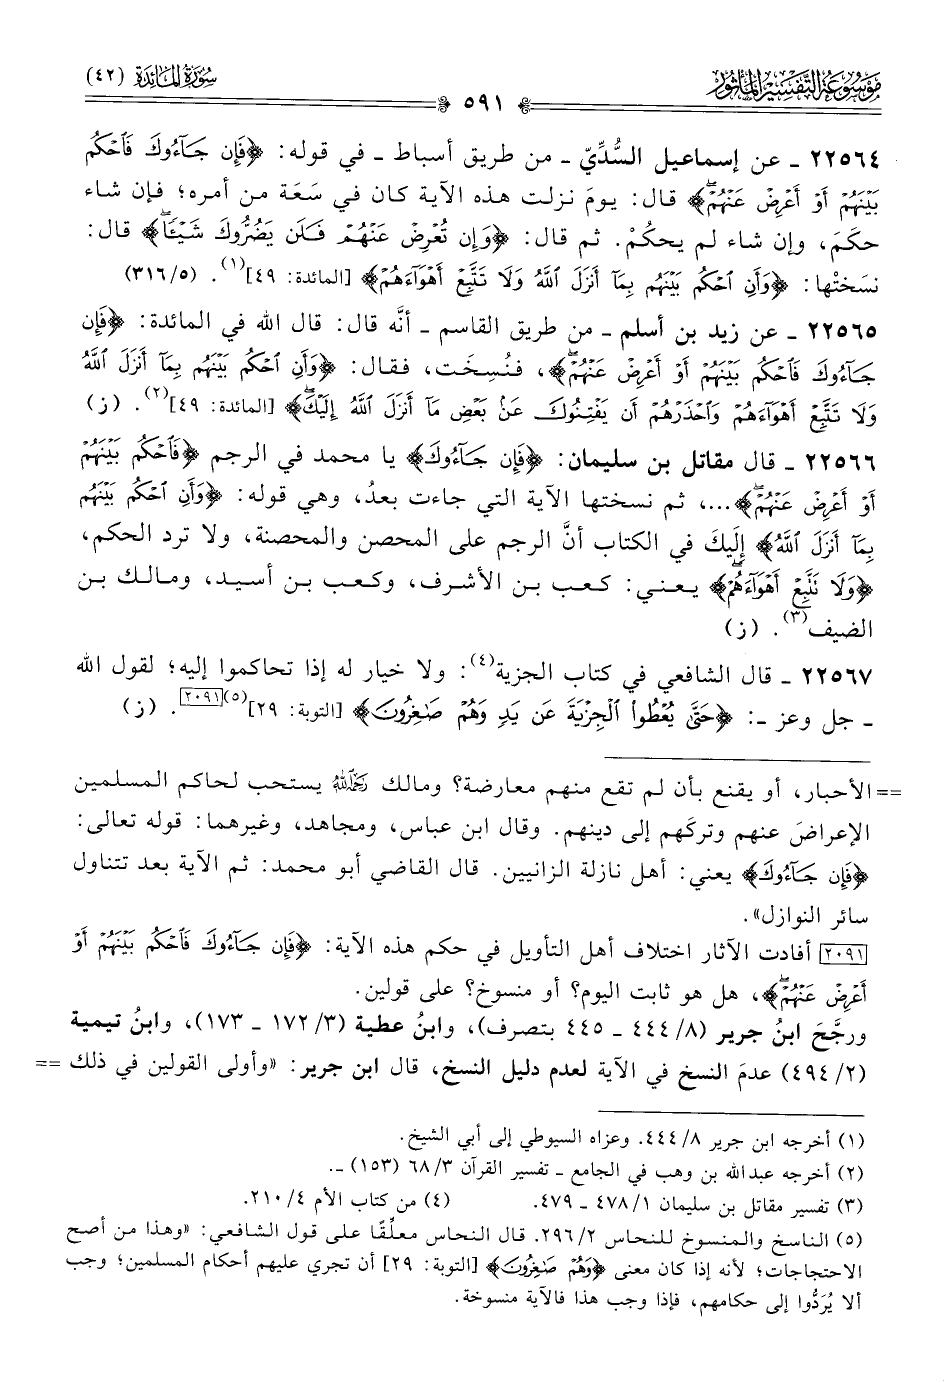 موسوعة التفسير المأثور سورة المائدة (٤٢)
٥٩١
٢٢٥٦٤ ـ عن إسماعيل السُّدِّيِّ ـ من طريق أسباط ـ في قوله: ﴿فَإِن جَآءُوكَ فَٱحْكُم
بَيْنَهُمْ أَوْ أَعْرِضْ عَنْهُمْۖ﴾ قال: يومَ نزلت هذه الآية كان في سَعَة من أمره؛ فإن شاء
حكَمَ، وإن شاء لم يحكُمْ. ثم قال: ﴿وَإِن تُعْرِضْ عَنْهُمْ فَلَن يَضُرُّوكَ شَيْـًٔاۖ﴾ قال:
نسَختْها: ﴿وَأَنِ ٱحْكُم بَيْنَهُم بِمَآ أَنزَلَ ٱللَّهُ وَلَا تَتَّبِعْ أَهْوَآءَهُمْ﴾ [المائدة: ٤٩](١). (٣١٦/٥)
٢٢٥٦٥ ـ عن زيد بن أسلم ـ من طريق القاسم ـ أنَّه قال: قال الله في المائدة: ﴿فَإِن
جَآءُوكَ فَٱحْكُم بَيْنَهُمْ أَوْ أَعْرِضْ عَنْهُمْۖ﴾، فنُسِخَت، فقال: ﴿وَأَنِ ٱحْكُم بَيْنَهُم بِمَآ أَنزَلَ ٱللَّهُ
وَلَا تَتَّبِعْ أَهْوَآءَهُمْ وَٱحْذَرْهُمْ أَن يَفْتِنُوكَ عَنۢ بَعْضِ مَآ أَنزَلَ ٱللَّهُ إِلَيْكَۖ﴾ [المائدة: ٤٩](٢). (ز)
٢٢٥٦٦ ـ قال مقاتل بن سليمان: ﴿فَإِن جَآءُوكَ﴾ يا محمد في الرجم ﴿فَٱحْكُم بَيْنَهُمْ
أَوْ أَعْرِضْ عَنْهُمْۖ﴾...، ثم نسختها الآية التي جاءت بعدُ، وهي قوله: ﴿وَأَنِ ٱحْكُم بَيْنَهُم
بِمَآ أَنزَلَ ٱللَّهُ﴾ إِلَيكَ في الكتاب أنَّ الرجم على المحصن والمحصنة، ولا ترد الحكم،
﴿وَلَا تَتَّبِعْ أَهْوَآءَهُمْۖ﴾ يعني: كعب بن الأشرف، وكعب بن أسيد، ومالك بن
الضيف(٣). (ز)
٢٢٥٦٧ ـ قال الشافعي في كتاب الجزية(٤): ولا خيار له إذا تحاكموا إليه؛ لقول الله
ـ جل وعز ـ: ﴿حَتَّىٰ يُعْطُوا۟ ٱلْجِزْيَةَ عَن يَدٍ وَهُمْ صَٰغِرُونَ﴾ [التوبة: ٢٩](٥)[٢٠٩١]. (ز)
== الأحبار، أو يقنع بأن لم تقع منهم معارضة؟ ومالك رَحِمَهُ اللهُ يستحب لحاكم المسلمين
الإعراضَ عنهم وتركَهم إلى دينهم. وقال ابن عباس، ومجاهد، وغيرهما: قوله تعالى:
﴿فَإِن جَآءُوكَ﴾ يعني: أهل نازلة الزانيين. قال القاضي أبو محمد: ثم الآية بعد تتناول
سائر النوازل».
[٢٠٩١] أفادت الآثار اختلاف أهل التأويل في حكم هذه الآية: ﴿فَإِن جَآءُوكَ فَٱحْكُم بَيْنَهُمْ أَوْ
أَعْرِضْ عَنْهُمْۖ﴾، هل هو ثابت اليوم؟ أو منسوخ؟ على قولين.
ورجَّحَ ابنُ جرير (٨/ ٤٤٤ ـ ٤٤٥ بتصرف)، وابنُ عطية (٣/ ١٧٢ ـ ١٧٣)، وابنُ تيمية
(٢/ ٤٩٤) عدمَ النسخ في الآية لعدم دليل النسخ، قال ابن جرير: «وأولى القولين في ذلك ==
(١) أخرجه ابن جرير ٨/ ٤٤٤. وعزاه السيوطي إلى أبي الشيخ.
(٢) أخرجه عبدالله بن وهب في الجامع ـ تفسير القرآن ٣/ ٦٨ (١٥٣) ـ.
(٣) تفسير مقاتل بن سليمان ١/ ٤٧٨ ـ ٤٧٩. (٤) من كتاب الأم ٤/ ٢١٠.
(٥) الناسخ والمنسوخ للنحاس ٢/ ٢٩٦. قال النحاس معلِّقًا على قول الشافعي: «وهذا من أصح
الاحتجاجات؛ لأنه إذا كان معنى ﴿وَهُمْ صَٰغِرُونَ﴾ [التوبة: ٢٩] أن تجري عليهم أحكام المسلمين؛ وجب
ألا يُرَدُّوا إلى حكامهم، فإذا وجب هذا فالآية منسوخة.